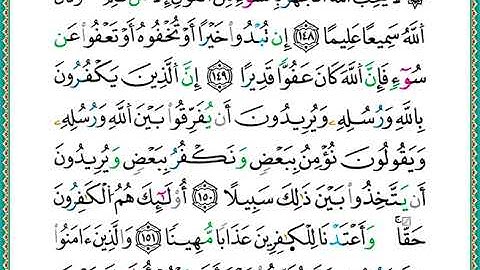 ٱللَّهُ سَمِيعًا عَلِيمًا ﴿١٤٨﴾ إِن تُبْدُوا۟ خَيْرًا أَوْ تُخْفُوهُ أَوْ تَعْفُوا۟ عَن
سُوٓءٍ فَإِنَّ ٱللَّهَ كَانَ عَفُوًّا قَدِيرًا ﴿١٤٩﴾ إِنَّ ٱلَّذِينَ يَكْفُرُونَ
بِٱللَّهِ وَرُسُلِهِۦ وَيُرِيدُونَ أَن يُفَرِّقُوا۟ بَيْنَ ٱللَّهِ وَرُسُلِهِۦ
وَيَقُولُونَ نُؤْمِنُ بِبَعْضٍ وَنَكْفُرُ بِبَعْضٍ وَيُرِيدُونَ
أَن يَتَّخِذُوا۟ بَيْنَ ذَٰلِكَ سَبِيلًا ﴿١٥٠﴾ أُو۟لَـٰٓئِكَ هُمُ ٱلْكَـٰفِرُونَ
حَقًّا ۚ وَأَعْتَدْنَا لِلْكَـٰفِرِينَ عَذَابًا مُّهِينًا ﴿١٥١﴾ وَٱلَّذِينَ ءَامَنُوا۟